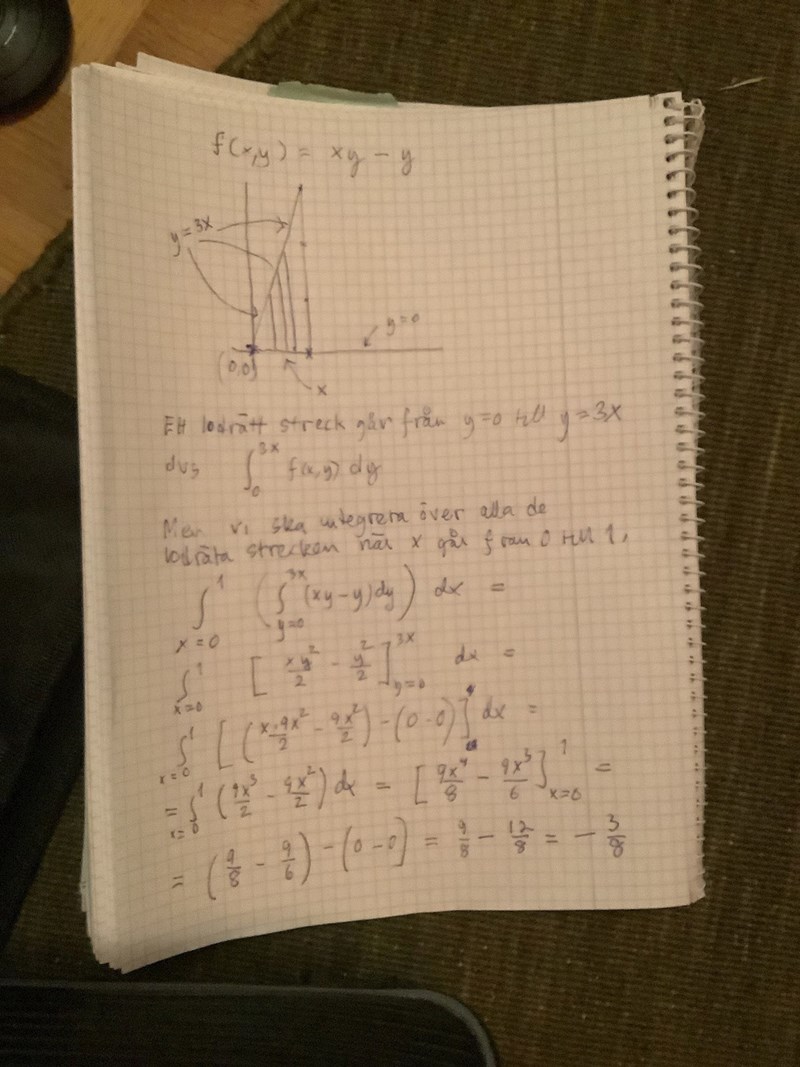 f(x,y) = xy - y
y = 3x
y=0
(0,0)
x
Ett lodrätt streck går från y=0 till y=3x
dvs ∫₀^{3x} f(x,y) dy
Men vi ska integrera över alla de
lodräta strecken när x går från 0 till 1,
∫_{x=0}^{1} ( ∫_{y=0}^{3x} (xy-y)dy ) dx =
∫_{x=0}^{1} [ xy²/2 - y²/2 ]_{y=0}^{3x} dx =
∫_{x=0}^{1} [ (x·9x²/2 - 9x²/2) - (0-0) ] dx =
= ∫_{x=0}^{1} (9x³/2 - 9x²/2) dx = [ 9x⁴/8 - 9x³/6 ]_{x=0}^{1} =
= (9/8 - 9/6) - (0-0] = 9/8 - 12/8 = - 3/8